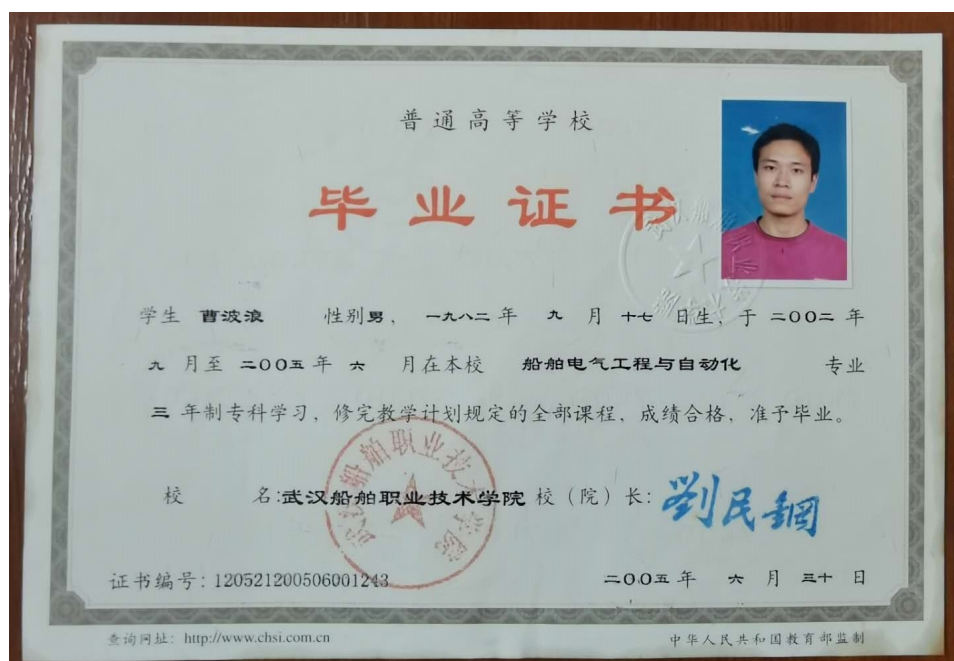 普通高等学校
毕业证书
学生 曹波浪 性别男、 一九八二年 九 月 十七 日生, 于 二00二 年
九 月至 二00五 年 六 月在本校 船舶电气工程与自动化 专业
三 年制专科学习, 修完教学计划规定的全部课程、成绩合格, 准予毕业。
校 名:武汉船舶职业技术学院 校(院)长: 劉民鋼
武汉船舶职业技术学院
证书编号: 120521200506001243 二00五年 六 月 三十 日
查询网址: http://www.chsi.com.cn 中华人民共和国教育部监制